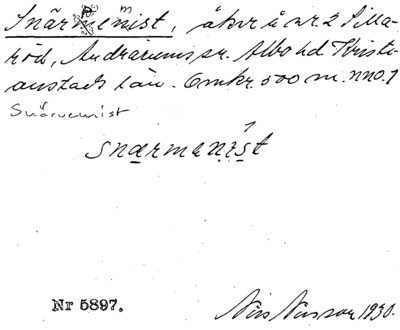 Snärmemist, åker å nr. 2 Illa-
röd, Andrarums sn. Albo hd Kristi-
anstads län. Omkr. 500 m. nno. 1
Snärvemist
snærmanist
Nr 5897.
Nils Nilsson 1930.